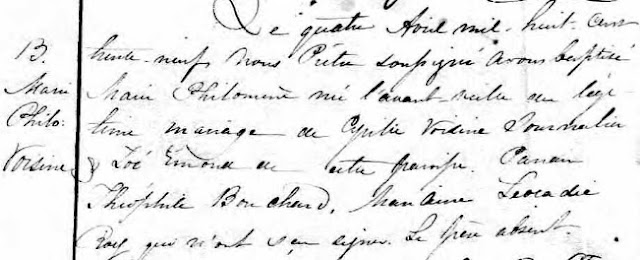 B.
Marie
Philo-
Voisine
Le quatre Avril mil-huit-cent
trente-neuf nous Prêtre soussigné avons baptisé
Marie Philomène née l'avant-veille du légi-
time mariage de Cyprie Voisine Journalier
& Zoé Emond de cette paroisse. Parrain
Théophile Bouchard, Marraine Leocadie
Roy qui n'ont su signer. Le père absent.